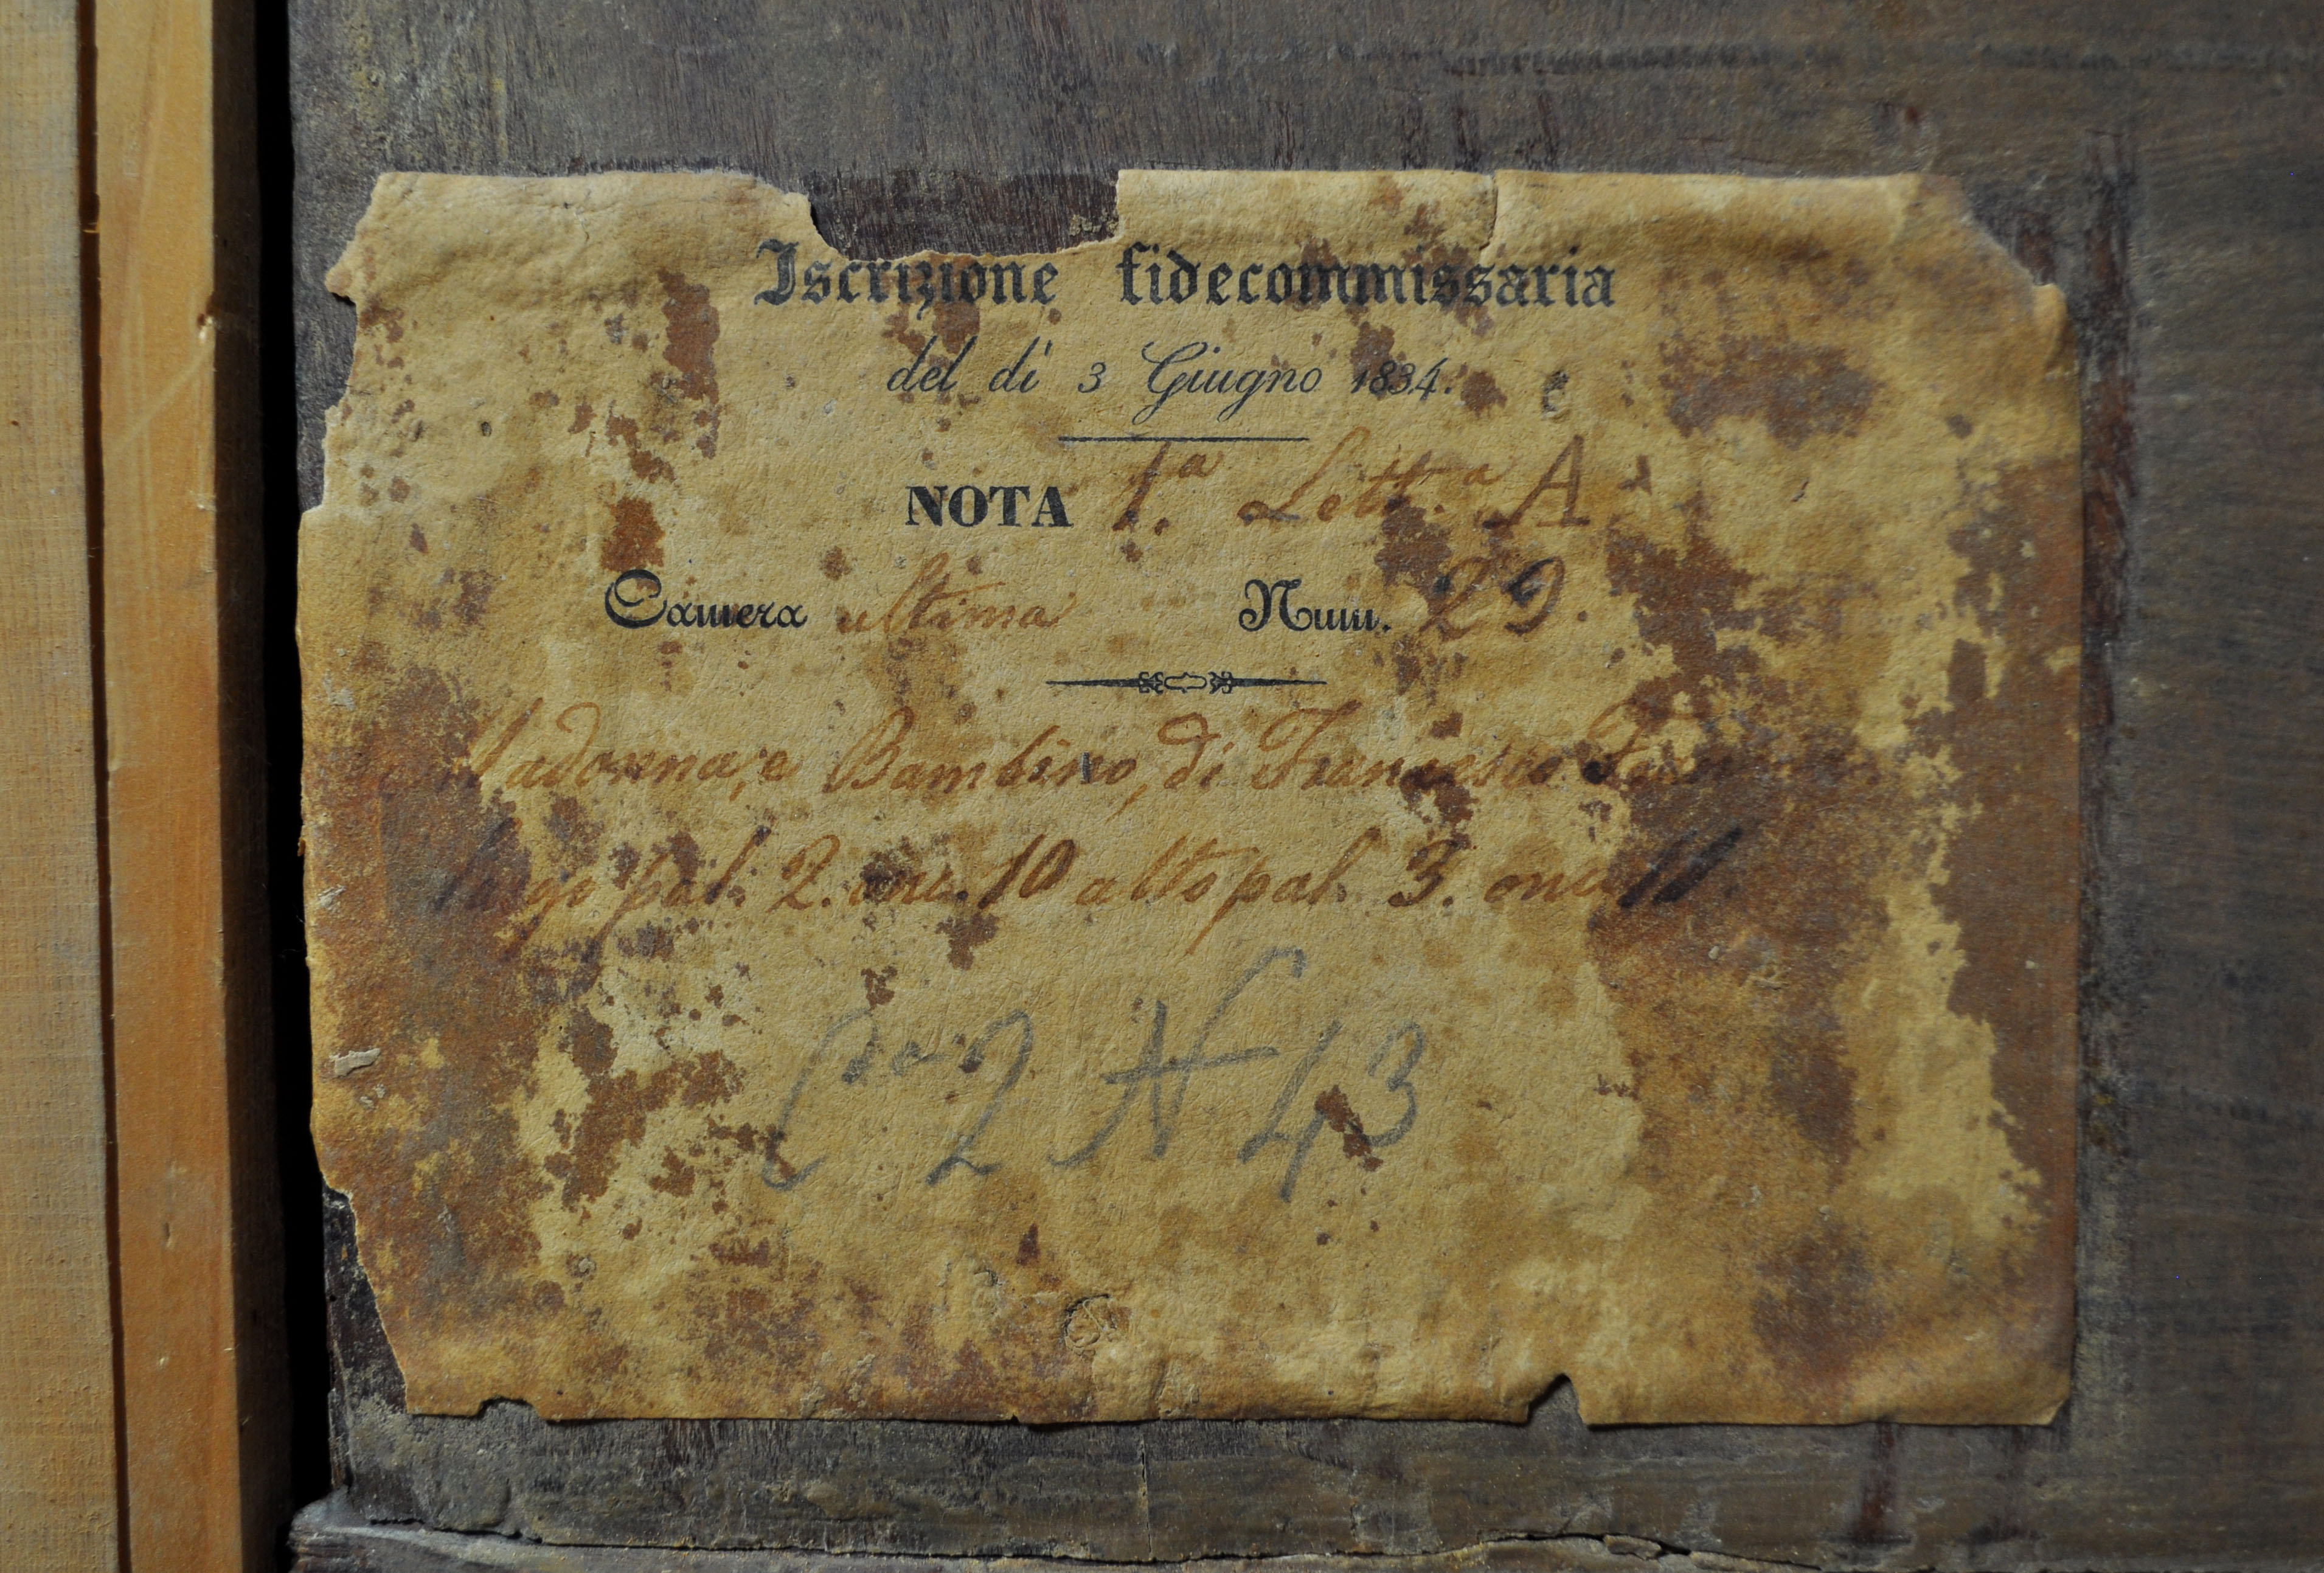 Iscrizione fidecommissaria
del dì 3 Giugno 1834.
NOTA 1.ª Lett.ª A
Camera ultima Num. 29.
Madonna, e Bambino, di Francesco
largo pal. 2. onc. 10 alto pal. 3. onc. 11.
2 N 43